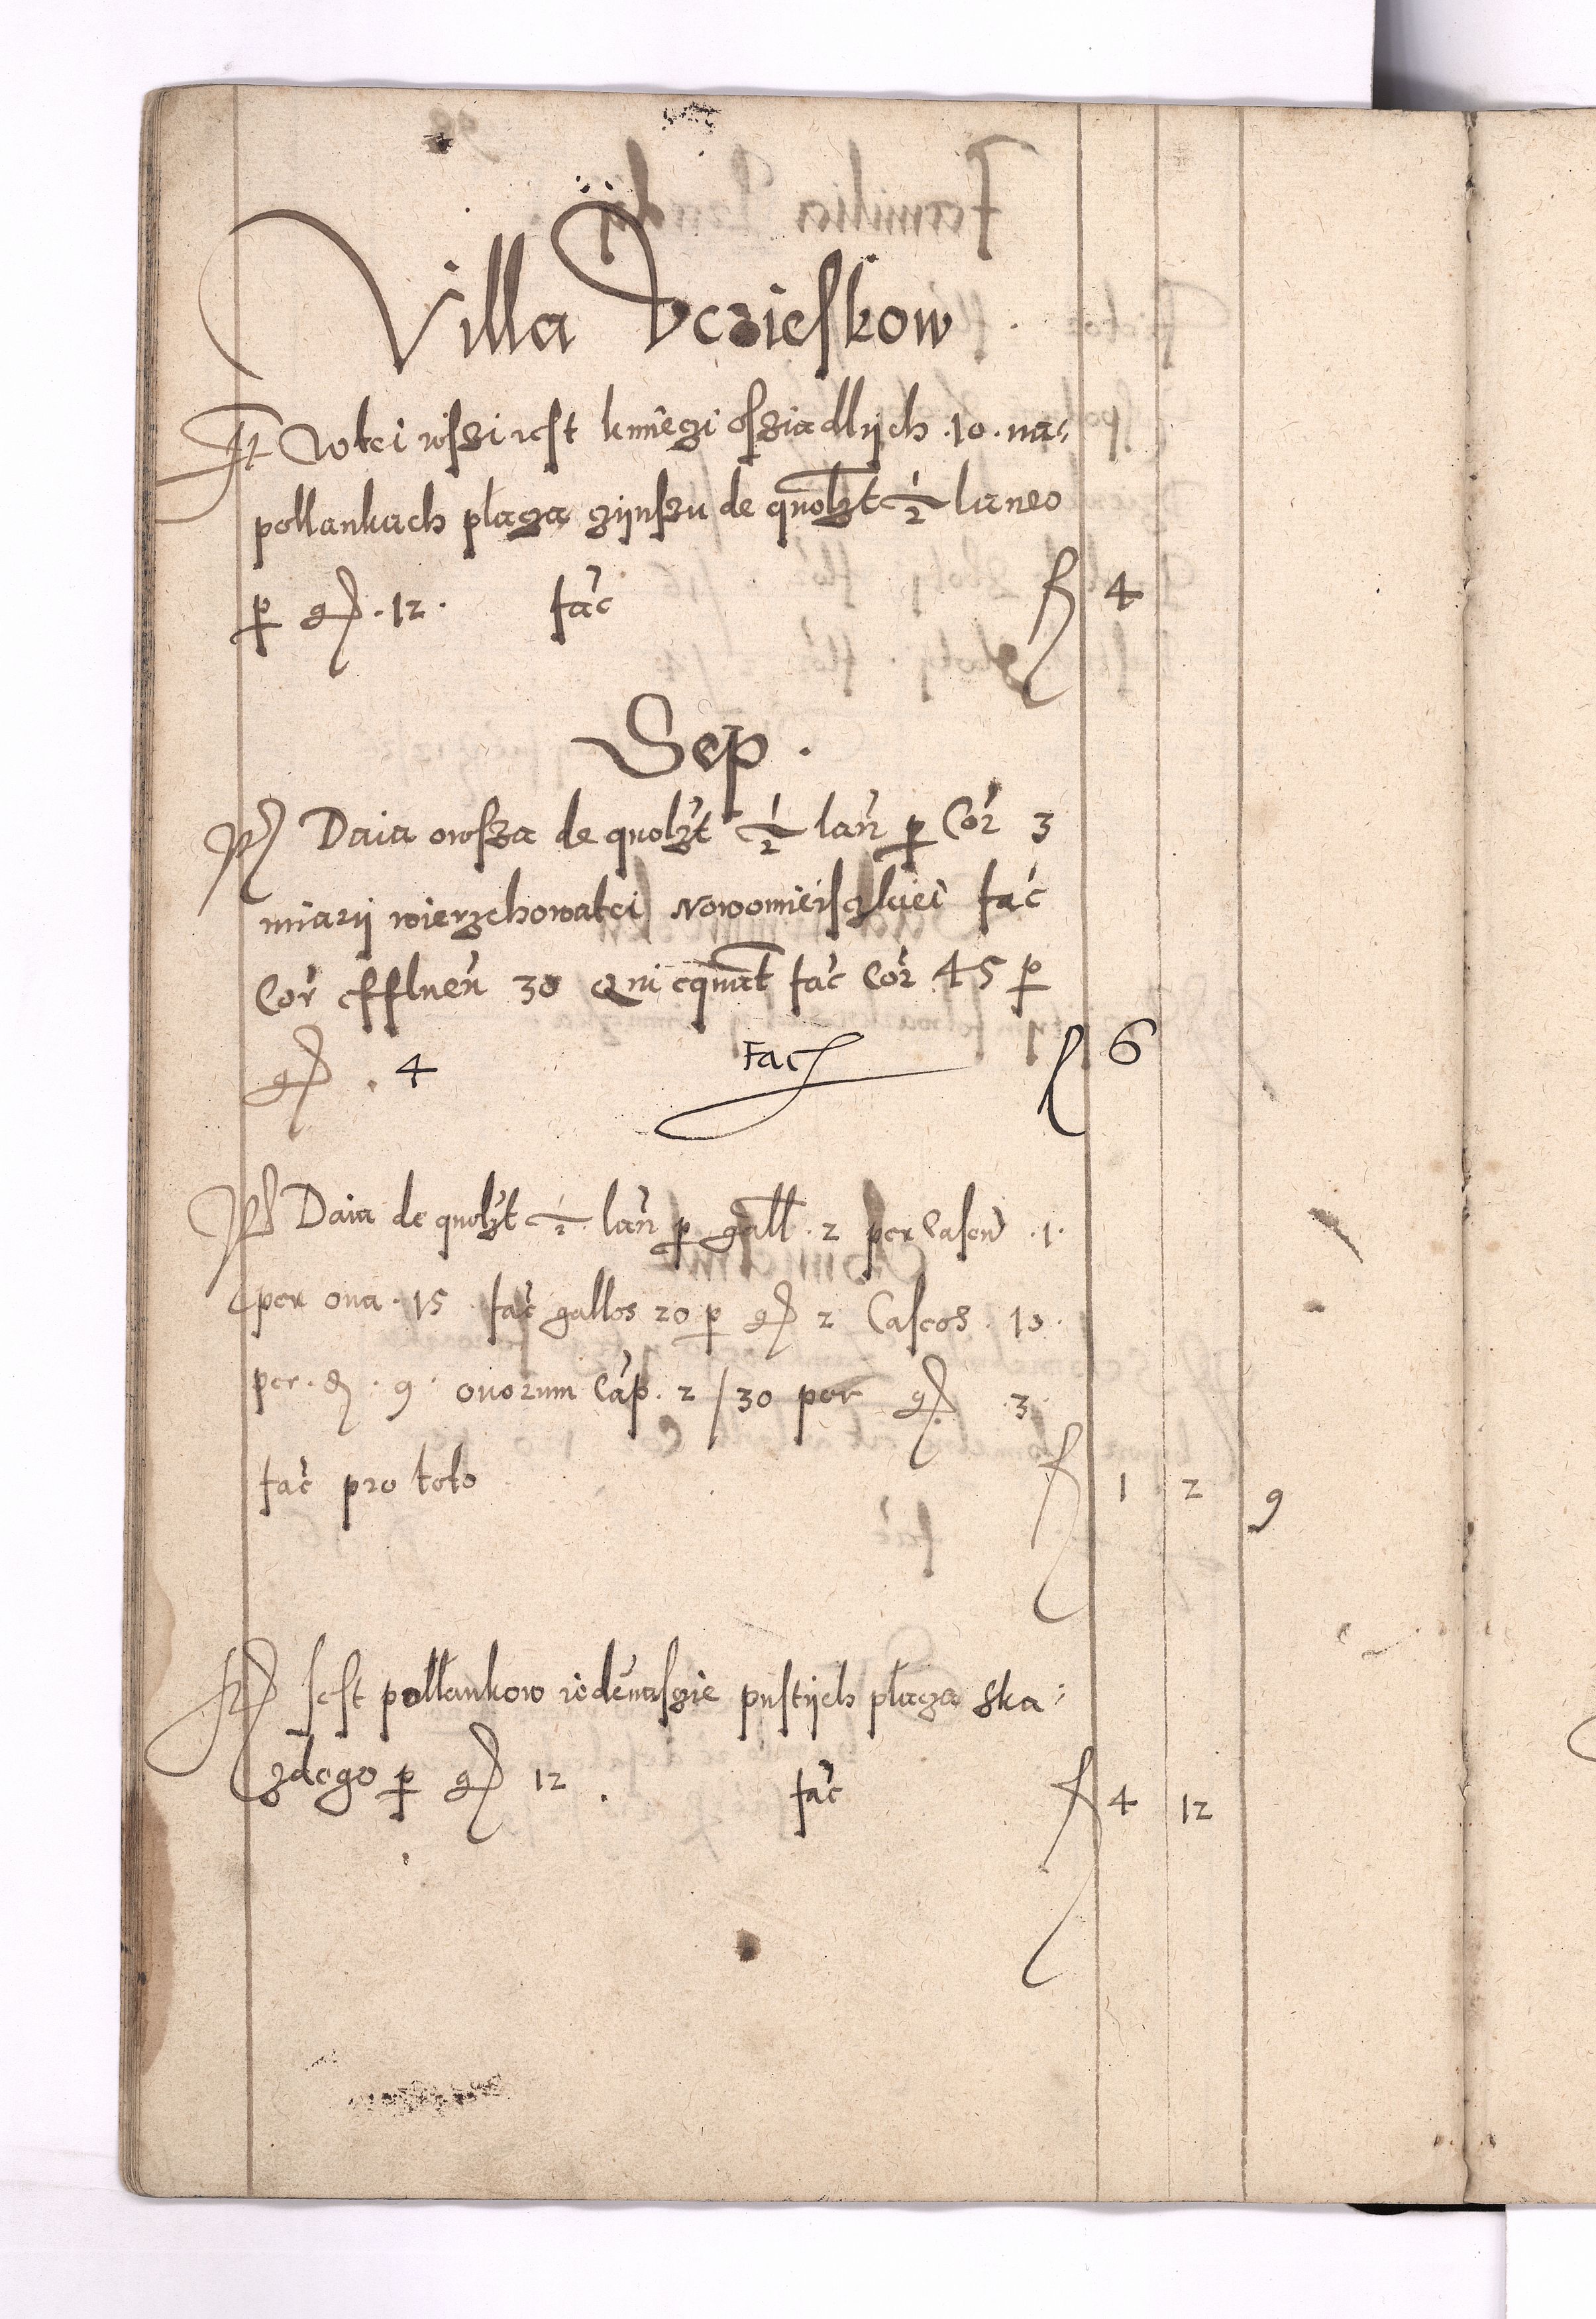 Villa Vczieſkow
It Wtei wſzi ieſt kmiêczi oſziadlÿch .10. na⸗
pollankach plaza zÿnſzu de quolzt ½ laneo
p gꝶ .12. fac̓ fl 4
Sep .
It Daia owſza de quolzt ½ lan̓ p Cor̓ 3
miarÿ wierzchowatei Nowomieiſzkiei fac̓
Cor̓ effluen̓ 30 Qui equat fac̓ Cor̓ 45 p
gꝶ . 4 Fac fl 6
It Daia de quolzt ½ lan̓ p gall .2 per Caſeu .1.
per oua .15 fac̓ gallos 20 p gꝶ 2 Caſeos .10.
per . ꝺ . 9 . ouorum Cap̓ . 2 / 30 per gꝶ 3
fac̓ pro toto fl 1 2 9
It Ieſt pollankow iedenaſzie puſtÿch plaza ſka⸗
zdego p gꝶ 12 . fac̓ fl 4 12